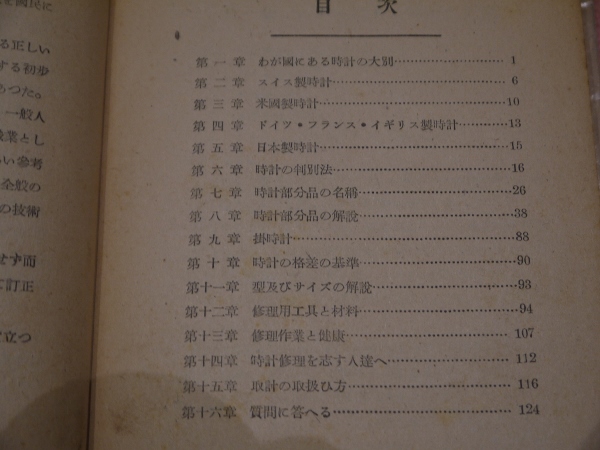 目次
第一章 わが國にある時計の大別…………………1
第二章 スイス製時計…………………6
第三章 米國製時計…………………10
第四章 ドイツ・フランス・イギリス製時計…………13
第五章 日本製時計…………………15
第六章 時計の判別法…………………16
第七章 時計部分品の名稱…………………26
第八章 時計部分品の解說…………………38
第九章 掛時計…………………88
第十章 時計の格差の基準…………………90
第十一章 型及びサイズの解說…………………93
第十二章 修理用工具と材料…………………94
第十三章 修理作業と健康…………………107
第十四章 時計修理を志す人達へ…………………112
第十五章 取計の取扱ひ方…………………116
第十六章 質問に答へる…………………124
國民に
る正しい
する初步
あつた。
一般人
業とし
い參考
全般の
の技術
せず而
に訂正
立つ